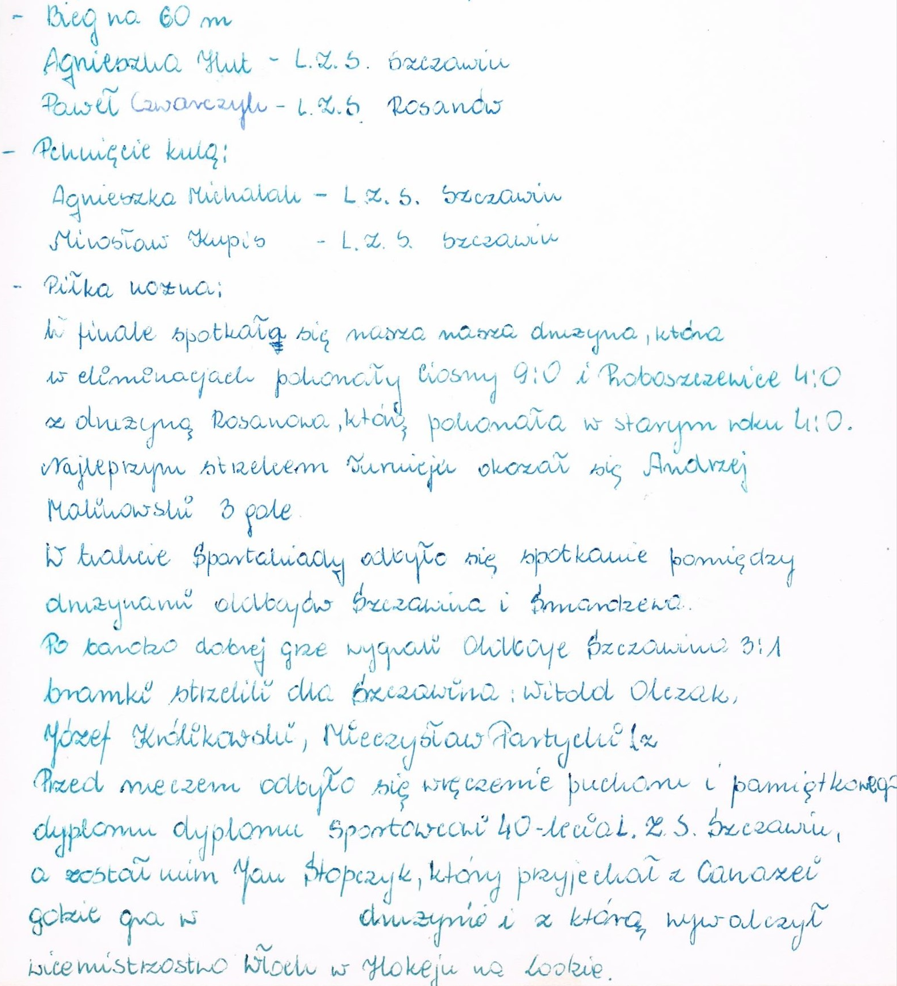 - Bieg na 60 m
Agnieszka Hut - L.Z.S. Szczawin
Paweł Czwarczyk - L.Z.S Rosanów
- Pchnięcie kulą;
Agnieszka Michalak - L Z. S. Szczawin
Mirosław Kupis - L.Z.S. Szczawin
- Piłka nożna;
W finale spotkałą się nasza nasza drużyna, która
w eliminacjach pokonały Ciosny 9:0 i Proboszczewice 4:0
z drużyną Rosanowa, którą pokonała w starym roku 4:0.
Najleprzym strzelcem Turnieju okazał się Andrzej
Malinowski 3 gole
W trakcie Spartakiady odbyło się spotkanie pomiędzy
drużynami oldbojów Szczawina i Smardzewa.
Po bardzo dobrej grze wygrali Oldboje Szczawina 3:1
bramki strzelili dla Szczawina: Witold Olczak,
Józef Królikowski, Mieczysław Partycki
Przed meczem odbyło się wręczenie pucharu i pamiątkowego
dyplomu dyplomu sportowcowi 40-lecia L. Z. S. Szczawin,
a został nim Jan Stopczyk, który przyjechał z Canazei
gdzie gra w drużynie i z którą wywalczył
wicemistrzostwo Włoch w Hokeju na Lodzie.